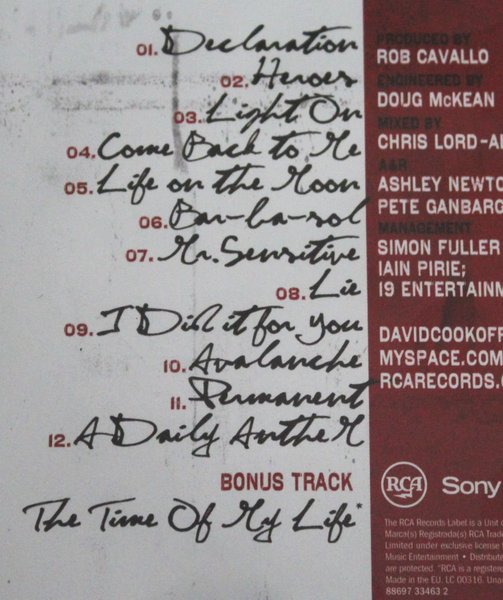 01. Declaration
02. Heroes
03. Light On
04. Come Back to Me
05. Life on the Moon
06. Bar-ba-sol
07. Mr. Sensitive
08. Lie
09. I Did it for you
10. Avalanche
11. Permanent
12. A Daily AntheM
BONUS TRACK
The Time Of My Life*
PRODUCED BY
ROB CAVALLO
ENGINEERED BY
DOUG McKEAN
MIXED BY
CHRIS LORD-AL
A&R
ASHLEY NEWTO
PETE GANBARG
MANAGEMENT
SIMON FULLER
IAIN PIRIE;
19 ENTERTAINM
DAVIDCOOKOFF
MYSPACE.COM
RCARECORDS.C
RCA Sony
The RCA Records Label is a Unit
Marca(s) Registrada(s) RCA Trad
Limited under exclusive license
Music Entertainment • Distribute
are protected. "RCA is a registere
Made in the EU. LC 00316. Unau
88697 33463 2